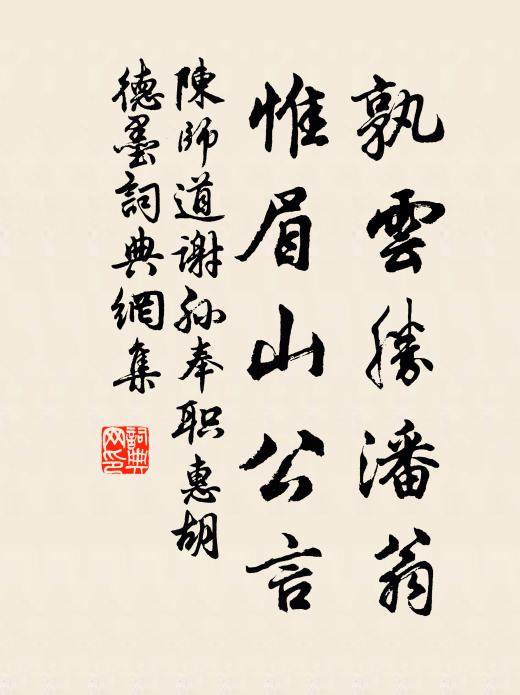 孰雲勝潘翁
惟眉山公言
陳師道謝孙奉职惠胡
德墨詞典網集
詞典
网印